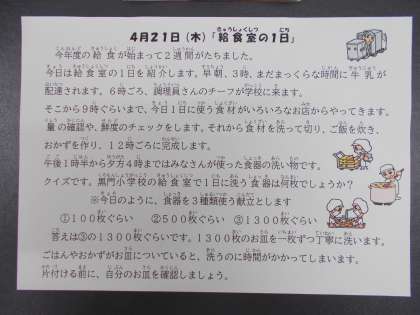 4月21日（木）「給食室の1日」
今年度の給食が始まって2週間がたちました。
今日は給食室の1日を紹介します。早朝、3時、まだまっくらな時間に牛乳が
配達されます。6時ごろ、調理員さんのチーフが学校に来ます。
そこから9時ぐらいまで、今日1日に使う食材がいろいろなお店からやってきます。
量の確認や、鮮度のチェックをします。それから食材を洗って切り、ご飯を炊き、
おかずを作り、12時ごろに完成します。
午後1時半から夕方4時まではみなさんが使った食器の洗い物です。
クイズです。黒門小学校の給食室で1日に洗う食器は何枚でしょうか？
※今日のように、食器を3種類使う献立とします
①100枚ぐらい　②500枚ぐらい　③1300枚ぐらい
答えは③の1300枚ぐらいです。1300枚のお皿を一枚ずつ丁寧に洗います。
ごはんやおかずがお皿についていると、洗うのに時間がかかってしまいます。
片付ける前に、自分のお皿を確認しましょう。